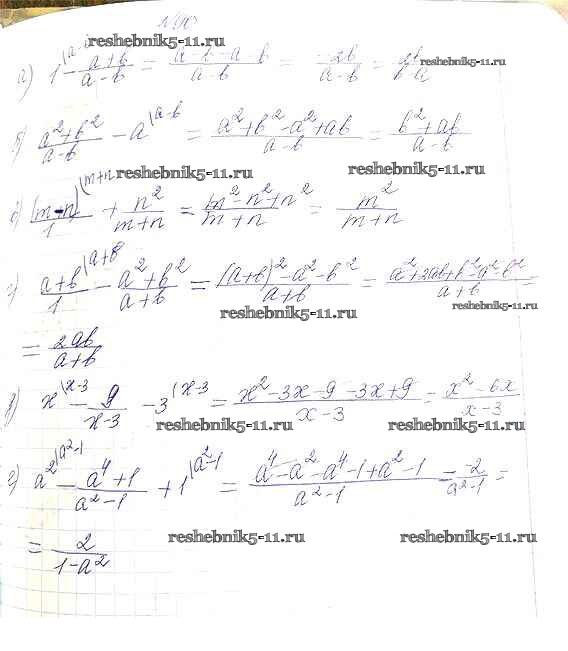 а) 1^{\(a-b} - \frac{a+b}{a-b} = \frac{a-b-a-b}{a-b} = \frac{-2b}{a-b} = \frac{2b}{b-a}
reshebnik5-11.ru reshebnik5-11.ru
б) \frac{a^2+b^2}{a-b} - a^{\(a-b} = \frac{a^2+b^2-a^2+ab}{a-b} = \frac{b^2+ab}{a-b}
reshebnik5-11.ru reshebnik5-11.ru
в) \frac{(m-n)}{1}^{\(m+n} + \frac{n^2}{m+n} = \frac{m^2-n^2+n^2}{m+n} = \frac{m^2}{m+n}
г) \frac{a+b}{1}^{\(a+b} - \frac{a^2+b^2}{a+b} = \frac{(a+b)^2-a^2-b^2}{a+b} = \frac{a^2+2ab+b^2-a^2-b^2}{a+b} =
reshebnik5-11.ru reshebnik5-11.ru
= \frac{2ab}{a+b}
x^{\(x-3} - \frac{9}{x-3} - 3^{\(x-3} = \frac{x^2-3x-9-3x+9}{x-3} = \frac{x^2-6x}{x-3}
reshebnik5-11.ru reshebnik5-11.ru
е) a^2^{\(a^2-1} - \frac{a^4+1}{a^2-1} + 1^{\(a^2-1} = \frac{a^4-a^2-a^4-1+a^2-1}{a^2-1} = \frac{-2}{a^2-1} =
= \frac{2}{1-a^2}
reshebnik5-11.ru reshebnik5-11.ru